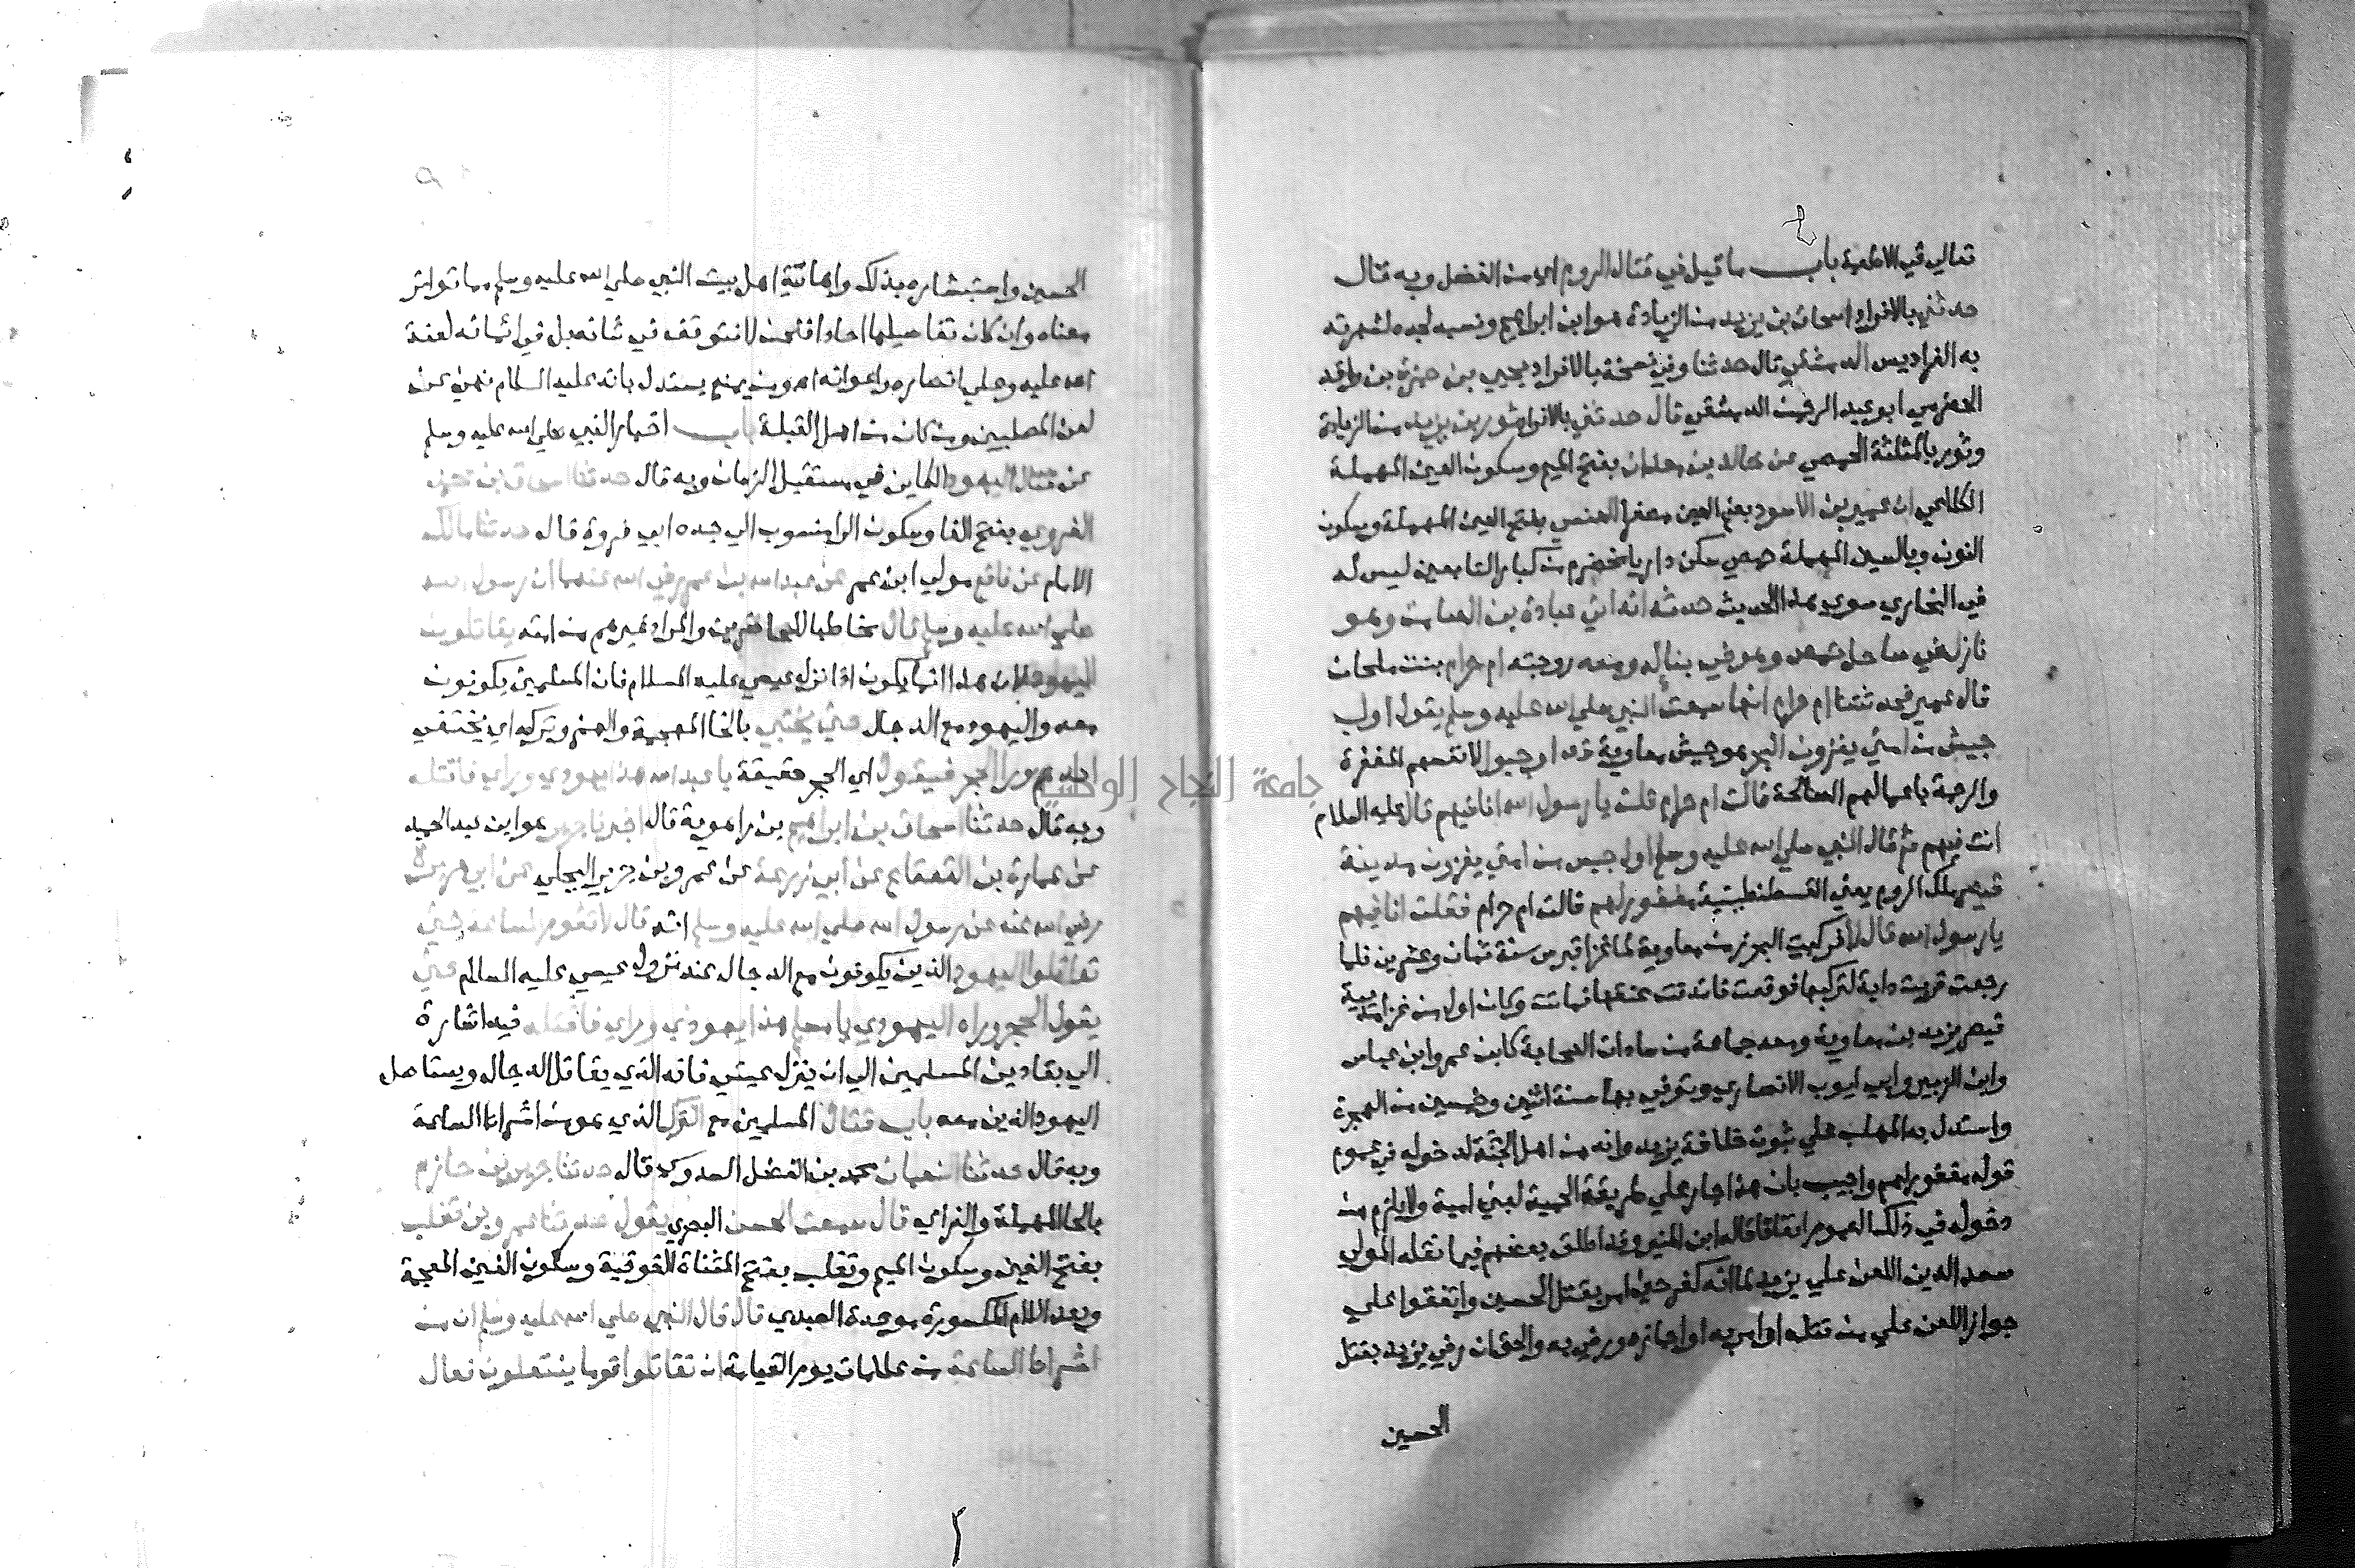 تعالى في الاطعمة باب ما قيل في قتال الروم اي من الفضل وبه قال
حدثني بالافراد اسحاق بن يزيد من الزيادة هو ابن ابراهيم ونسبه لجده لشهرته
به الفراديس الدمشقي قال حدثنا وفي نسخة بالافراد يحيى بن حمزة بن واقد
الحضرمي ابو عبد الرحمن الدمشقي قال حدثني بالافراد ثور بن يزيد من الزيادة
وثور بالمثلثة الحمصي عن خالد بن معدان بفتح الميم وسكون العين المهملة
الكلاعي ان عمير بن الاسود بضم العين مصغرا العنسي بفتح العين المهملة وسكون
النون وبالسين المهملة حمصي سكن داريا مخضرم من كبار التابعين ليس له
في البخاري سوى هذا الحديث حدثه انه اتى عبادة بن الصامت وهو
نازل في ساحل حمص وهو في بناء له ومعه زوجته ام حرام بنت ملحان
قال عمير فحدثتنا ام حرام انها سمعت النبي صلى الله عليه وسلم يقول اول
جيش من امتي يغزون البحر هو جيش معاوية قد اوجبوا لانفسهم المغفرة
والرحمة باعمالهم الصالحة قالت ام حرام قلت يا رسول الله انا فيهم قال عليه السلام
انت فيهم ثم قال النبي صلى الله عليه وسلم اول جيش من امتي يغزون مدينة
قيصر ملك الروم يعني القسطنطينية مغفور لهم قالت ام حرام فقلت انا فيهم
يا رسول الله قال لا فركبت البحر زمن معاوية لما غزا قبرس سنة ثمان وعشرين فلما
رجعت قربت دابة لتركبها فوقعت فاندقت عنقها فماتت وكان اول من غزا مدينة
قيصر يزيد بن معاوية ومعه جماعة من سادات الصحابة كابن عمر وابن عباس
وابن الزبير وابي ايوب الانصاري وتوفي بها سنة اثنين وخمسين من الهجرة
واستدل به المهلب على ثبوت خلافة يزيد وانه من اهل الجنة لدخوله في عموم
قوله مغفور لهم واجيب بان هذا جار على طريقة الحمية لبني امية ولا يلزم من
دخوله في ذلك العموم اتفاقا قاله ابن المنير وقد اطلق بعضهم فيما نقله المولى
سعد الدين اللعن على يزيد لما انه كفر حين امر بقتل الحسين واتفقوا على
جواز اللعن على من قتله او امر به او اجازه ورضي به والحق ان رضى يزيد بقتل
الحسين
الحسين واستبشاره بذلك واهانته اهل بيت النبي صلى الله عليه وسلم مما تواتر
معناه وان كان تفاصيلها احادا فنحن لا نتوقف في شانه بل في ايمانه لعنة
الله عليه وعلى انصاره واعوانه اه ومن يمنع يستدل بانه عليه السلام نهى عن
لعن المصلين ومن كان من اهل القبلة باب اخبار النبي صلى الله عليه وسلم
عن قتال اليهود الكاين في مستقبل الزمان وبه قال حدثنا اسحاق بن محمد
الفروي بفتح الفا وسكون الرا منسوب الى جده ابي فروة قال حدثنا مالك
الامام عن نافع مولى ابن عمر عن عبد الله بن عمر رضي الله عنهما ان رسول الله
صلى الله عليه وسلم قال مخاطبا للحاضرين والمراد غيرهم من امته يقاتلون
اليهود لان هذا انما يكون اذا نزل عيسى عليه السلام فان المسلمين يكونون
معه واليهود مع الدجال حتى يختبي بالخا المعجمة والهمز وتركه اي يختفي
احدهم ورا الحجر فيقول اي الحجر حقيقة يا عبد الله هذا يهودي وراي فاقتله
وبه قال حدثنا اسحاق بن ابراهيم بن راهوية قال اخبرنا جرير هو ابن عبد الحميد
عن عمارة بن القعقاع عن ابي زرعة عن عمرو بن جرير البجلي عن ابي هريرة
رضي الله عنه عن رسول الله صلى الله عليه وسلم انه قال لا تقوم الساعة حتى
تقاتلوا اليهود الذين يكونون مع الدجال عند نزول عيسى عليه السلام حتى
يقول الحجر وراه اليهودي يا مسلم هذا يهودي وراي فاقتله فيه اشارة
الى بقا دين المسلمين الى ان ينزل عيسى فانه الذي يقاتل الدجال ويستاصل
اليهود الذين معه باب قتال المسلمين مع الترك الذي هو من اشراط الساعة
وبه قال حدثنا النعمان محمد بن الفضل السدوسي قال حدثنا جرير بن حازم
بالحا المهملة والزاي قال سمعت الحسن البصري يقول حدثنا عمرو بن تغلب
بفتح العين وسكون الميم وتغلب بفتح المثناة الفوقية وسكون الغين المعجمة
وبعد اللام المكسورة موحدة العبدي قال قال النبي صلى الله عليه وسلم ان من
اشراط الساعة من علامات يوم القيامة ان تقاتلوا قوما ينتعلون نعال
جامعة النجاح الوطنية